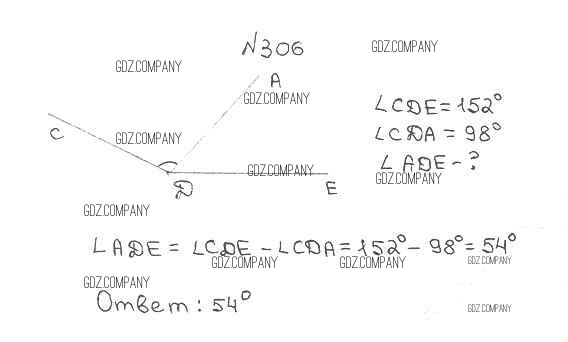 N306
GDZ.COMPANY
GDZ.COMPANY
A
GDZ.COMPANY
∠CDE = 152°
C
GDZ.COMPANY
∠CDA = 98°
GDZ.COMPANY
∠ADE - ?
GDZ.COMPANY
D
E
GDZ.COMPANY
∠ADE = ∠CDE - ∠CDA = 152° - 98° = 54°
GDZ.COMPANY
GDZ.COMPANY
GDZ.COMPANY
GDZ.COMPANY
Ответ: 54°
GDZ.COMPANY